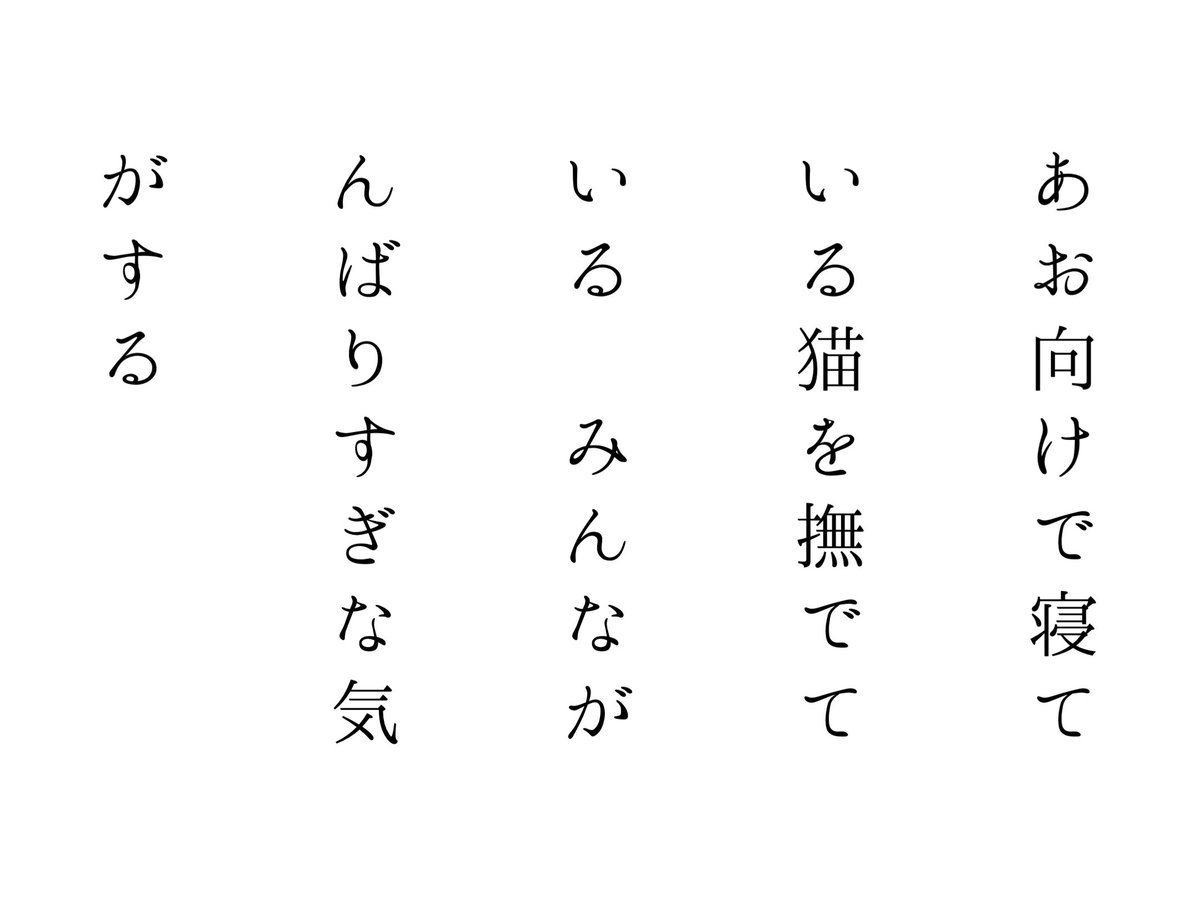 あお向けで寝て
いる猫を撫でて
いる　みんなが
んばりすぎな気
がする